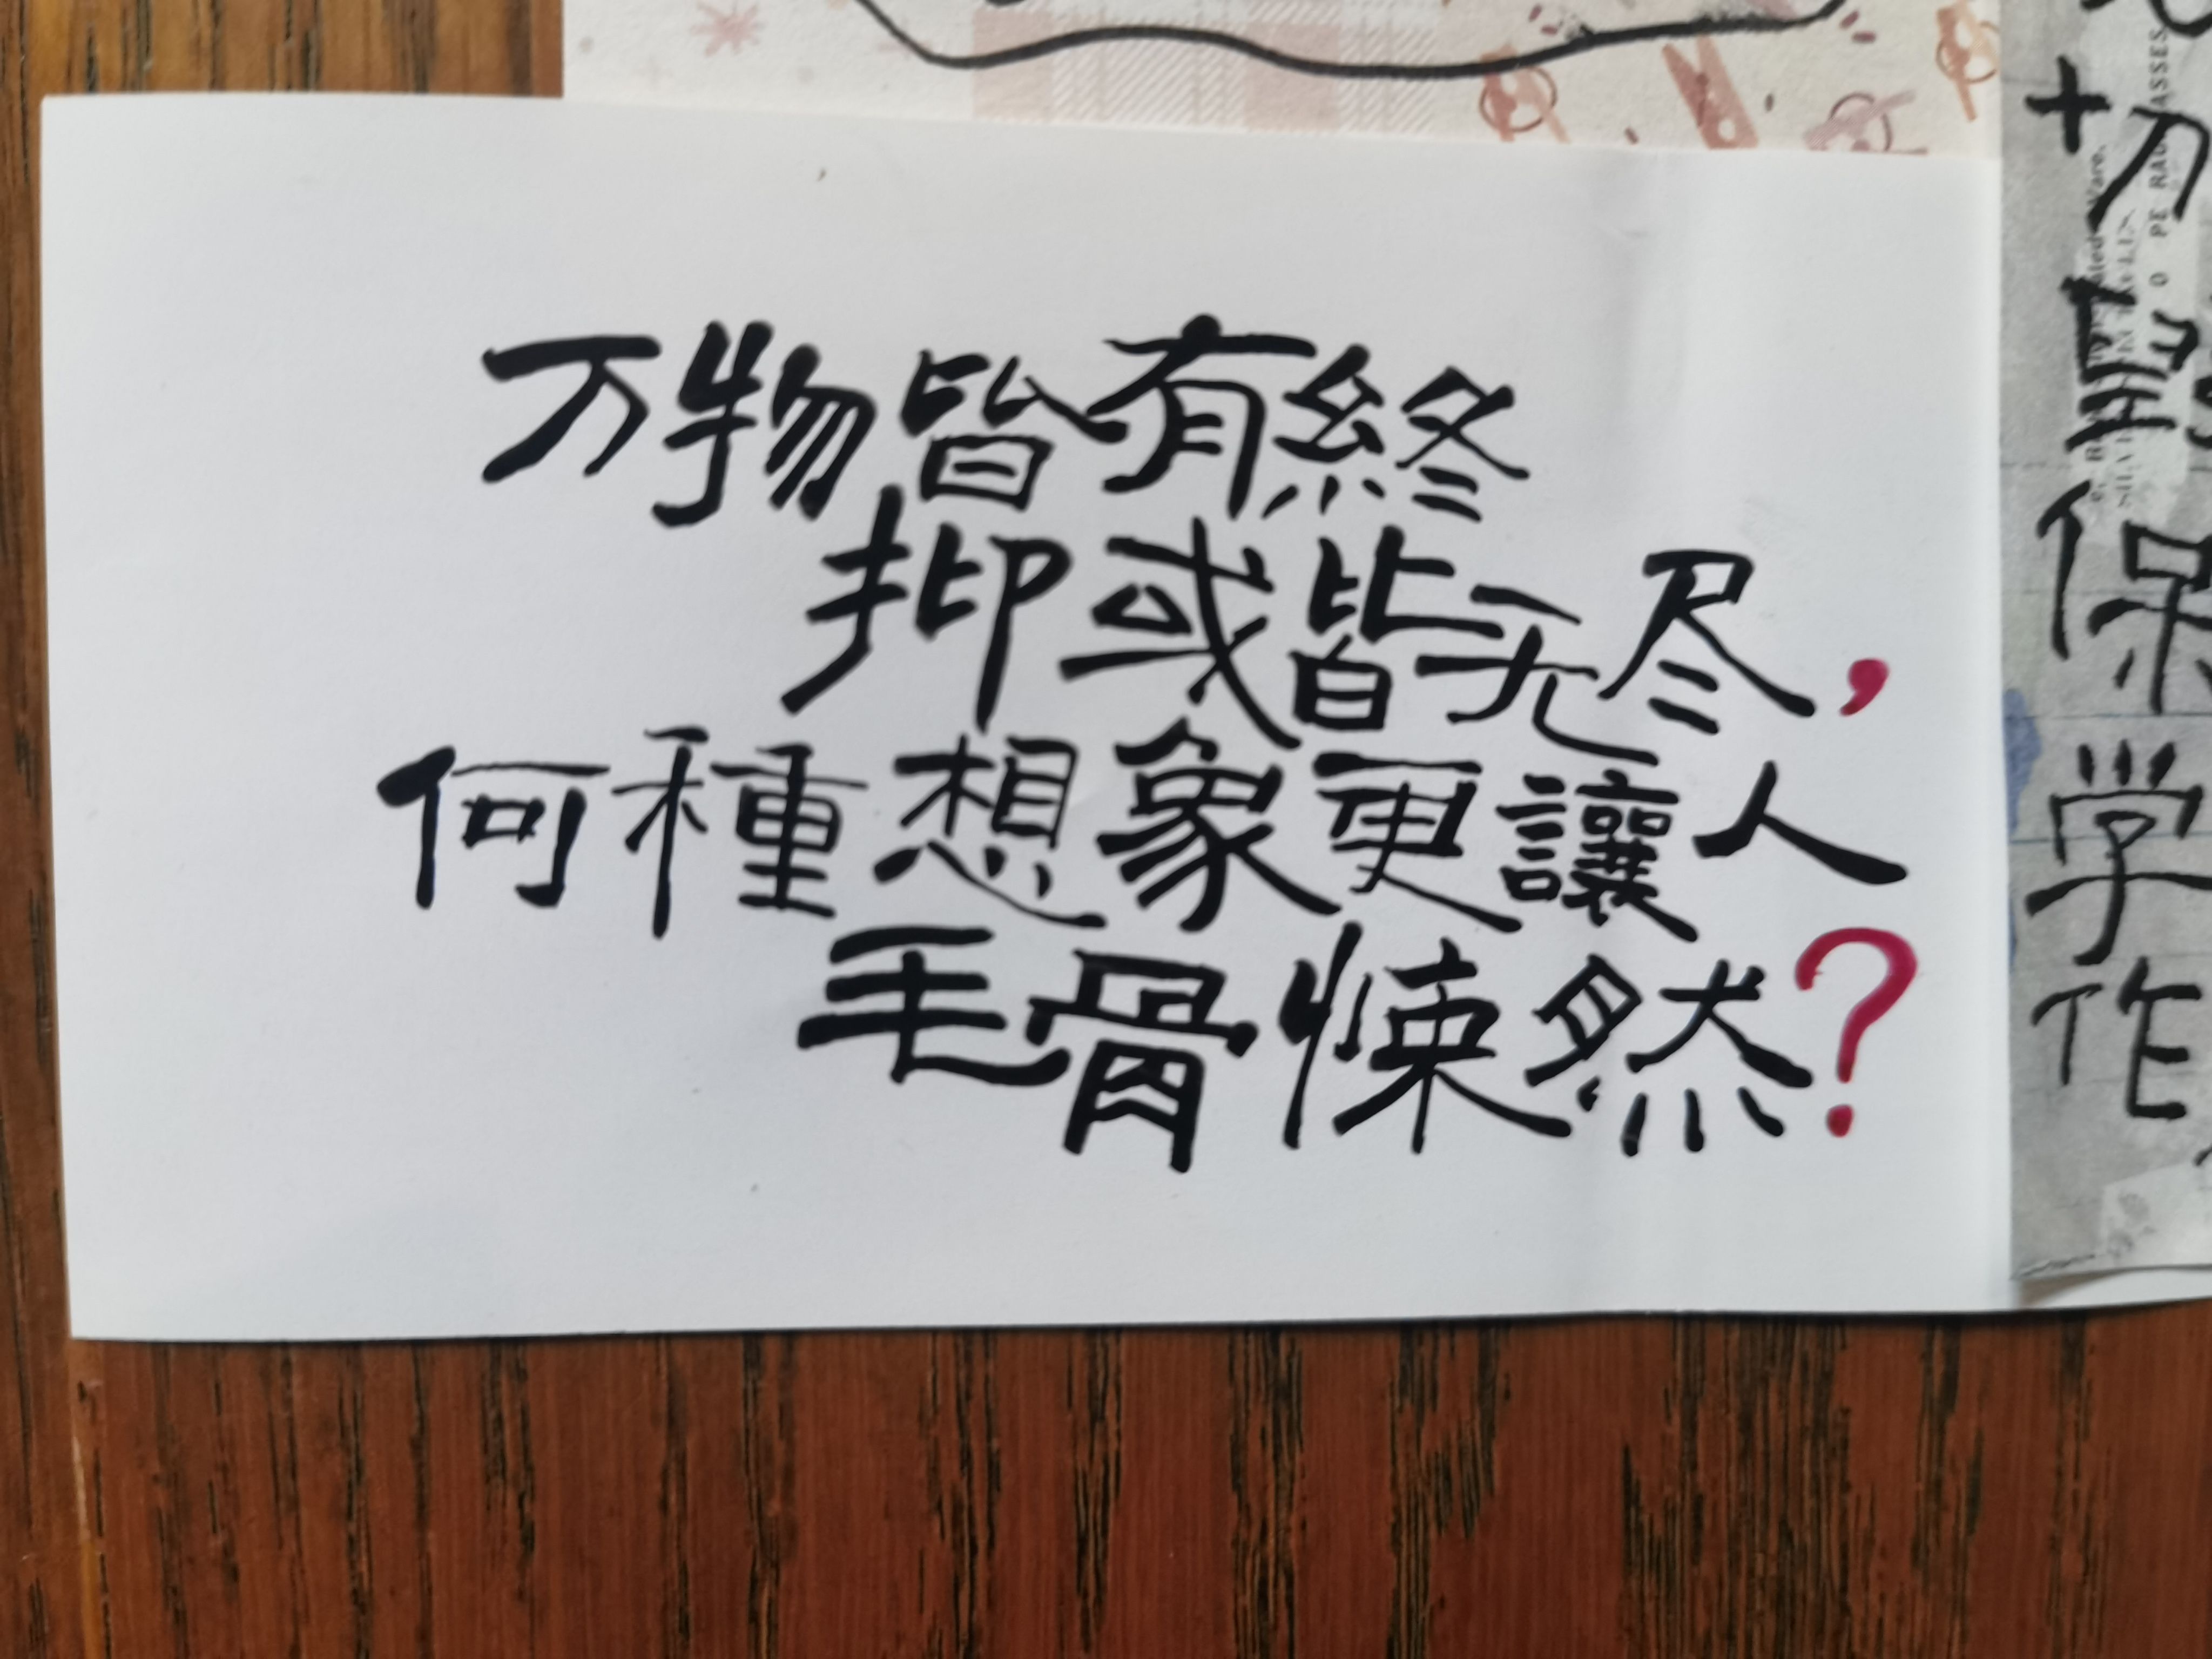 万物皆有終
抑或皆无尽，
何種想象更讓人
毛骨悚然？
保
学
作